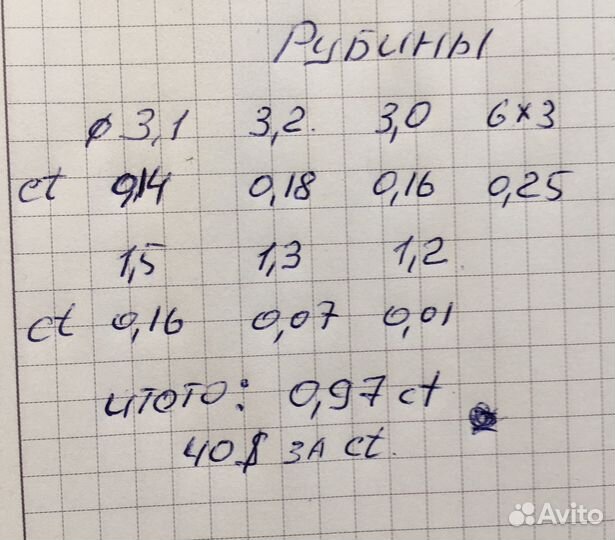 Рубины
ø 3,1 3,2. 3,0 6×3
ct 0,14 0,18 0,16 0,25
1,5 1,3 1,2
ct 0,16 0,07 0,01
итого: 0,97 ct
40$ за ct.
Avito